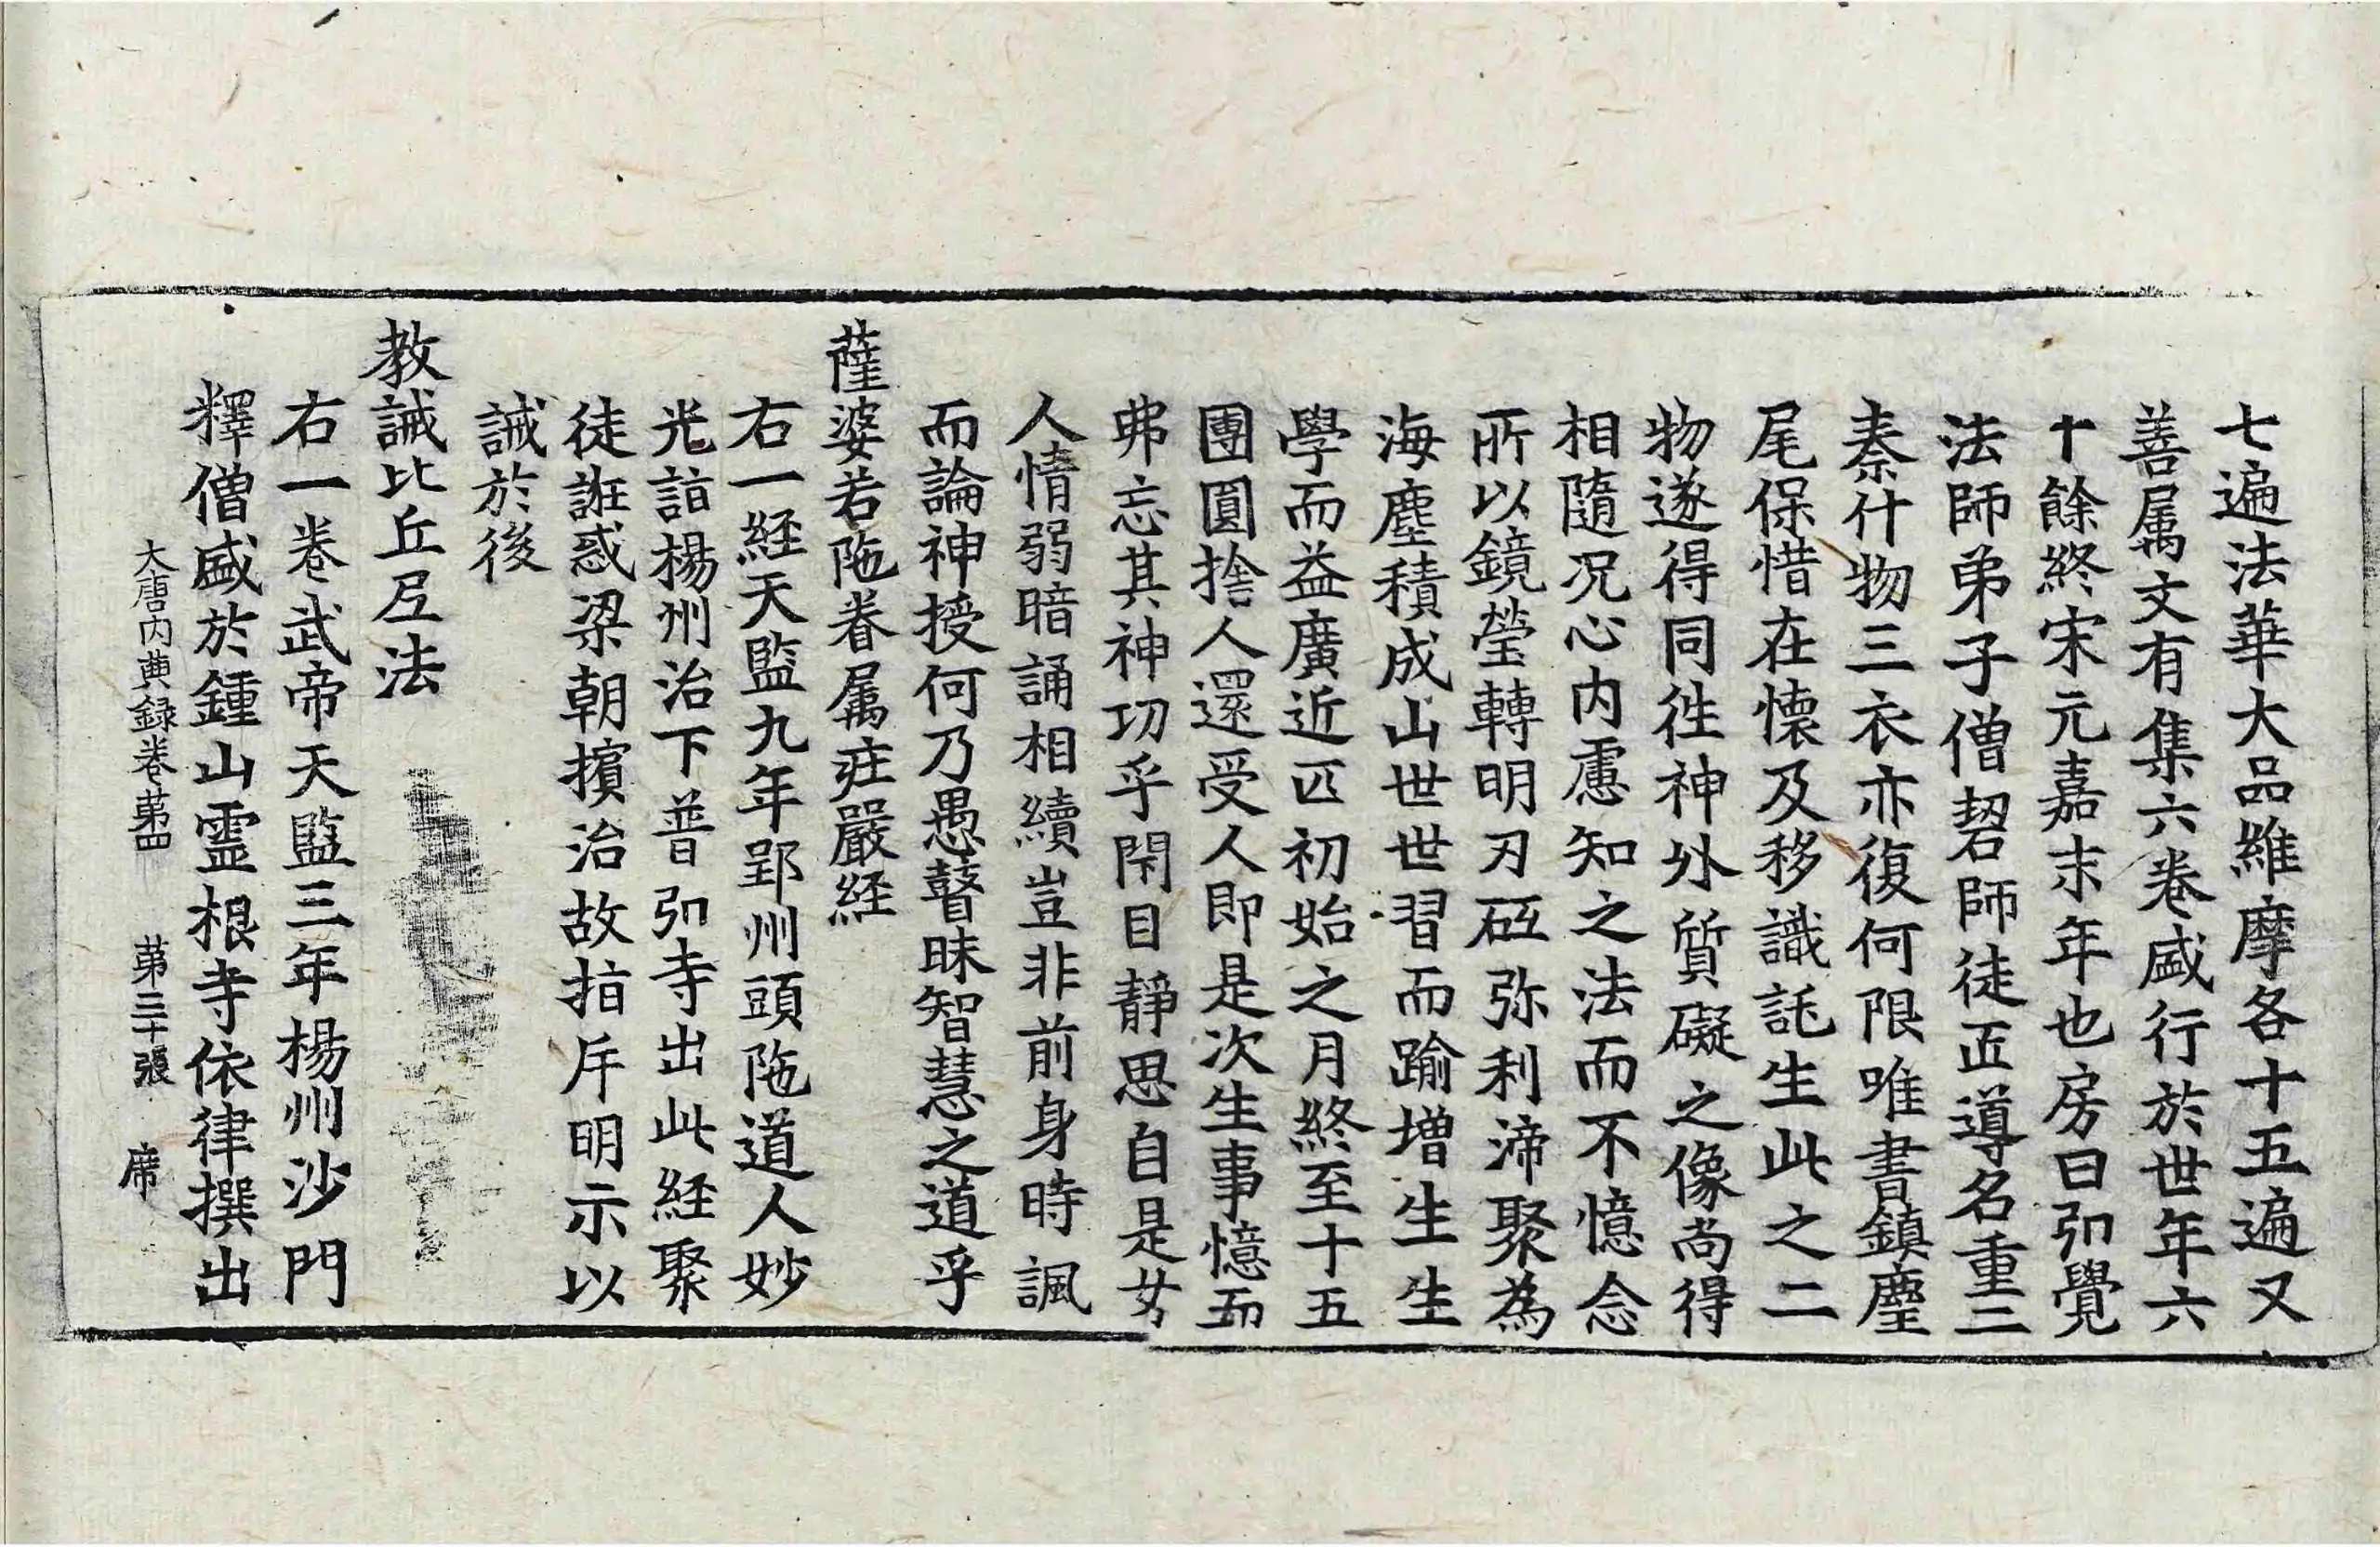 七遍法華大品維摩各十五遍又
善属文有集六卷盛行於世年六
十餘終宋元嘉末年也房曰弘覺
法師弟子僧䂮師徒匠導名重三
秦什物三衣亦復何限唯書鎮麈
尾保惜在懷及移識託生此之二
物遂得同徃神外質礙之像尚得
相隨况心内慮知之法而不憶念
所以鏡瑩轉明刃砥弥利渧聚為
海塵積成山世世習而踰增生生
學而益廣近匹初始之月終至十五
團圓捨人還受人即是次生事憶而
弗忘其神功乎閇目靜思自是女
人情弱暗誦相續豈非前身時諷
而論神授何乃愚瞽昧智慧之道乎
薩婆若陁眷属荘嚴經
右一經天監九年郢州頭陁道人妙
光詣楊州治下普弘寺出此經聚
徒誑惑梁朝擯治故指斥明示以
誡於後
教誡比丘尼法
右一卷武帝天監三年楊州沙門
釋僧盛於鍾山霊根寺依律撰出
大唐内典録卷苐四 苐三十張 席